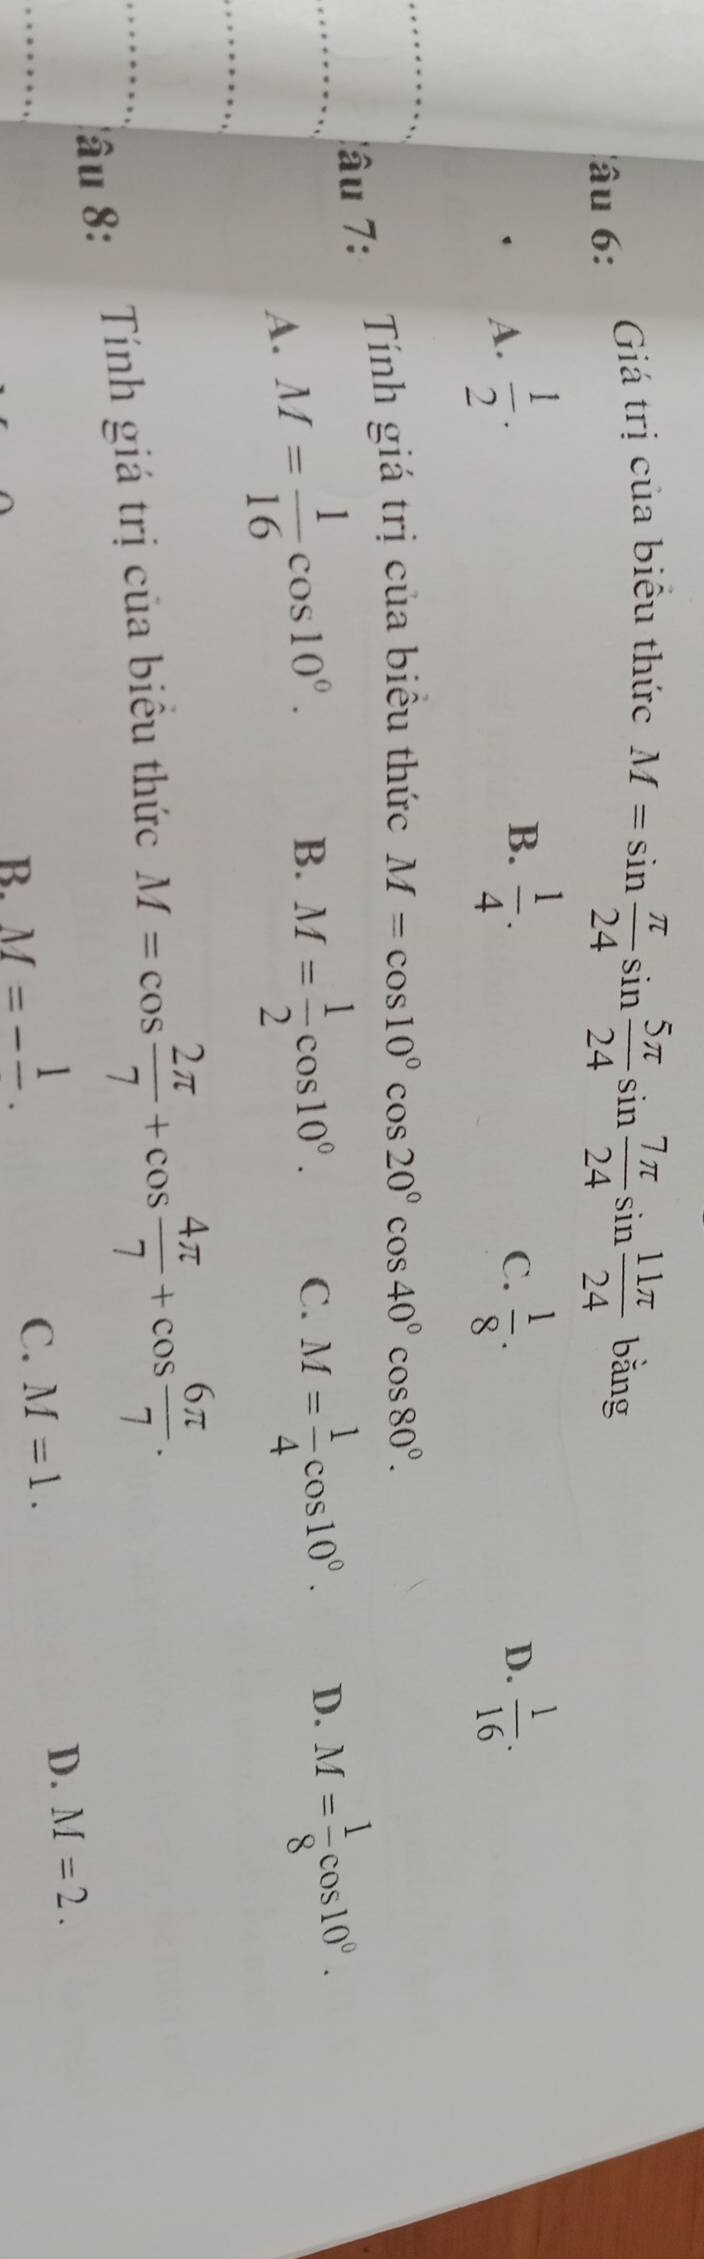 âu 6: Giá trị của biểu thức M = sin π/24 sin 5π/24 sin 7π/24 sin 11π/24 bằng
A. 1/2. B. 1/4. C. 1/8. D. 1/16.
âu 7: Tính giá trị của biểu thức M = cos10⁰ cos20⁰ cos40⁰ cos80⁰.
A. M = 1/16 cos10⁰. B. M = 1/2 cos10⁰. C. M = 1/4 cos10⁰. D. M = 1/8 cos10⁰.
âu 8: Tính giá trị của biểu thức M = cos 2π/7 + cos 4π/7 + cos 6π/7.
C. M = 1. D. M = 2.